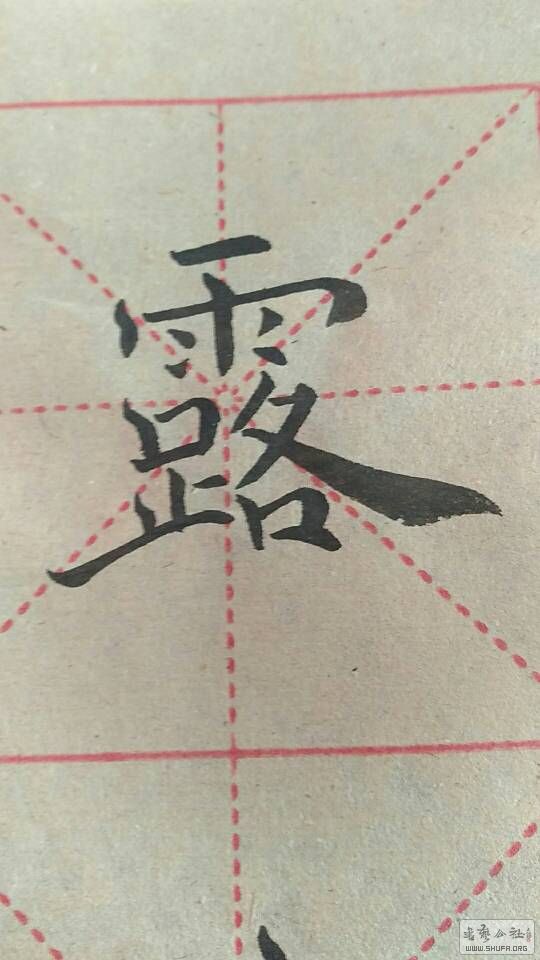 露
书艺公社
WWW.SHUFA.ORG